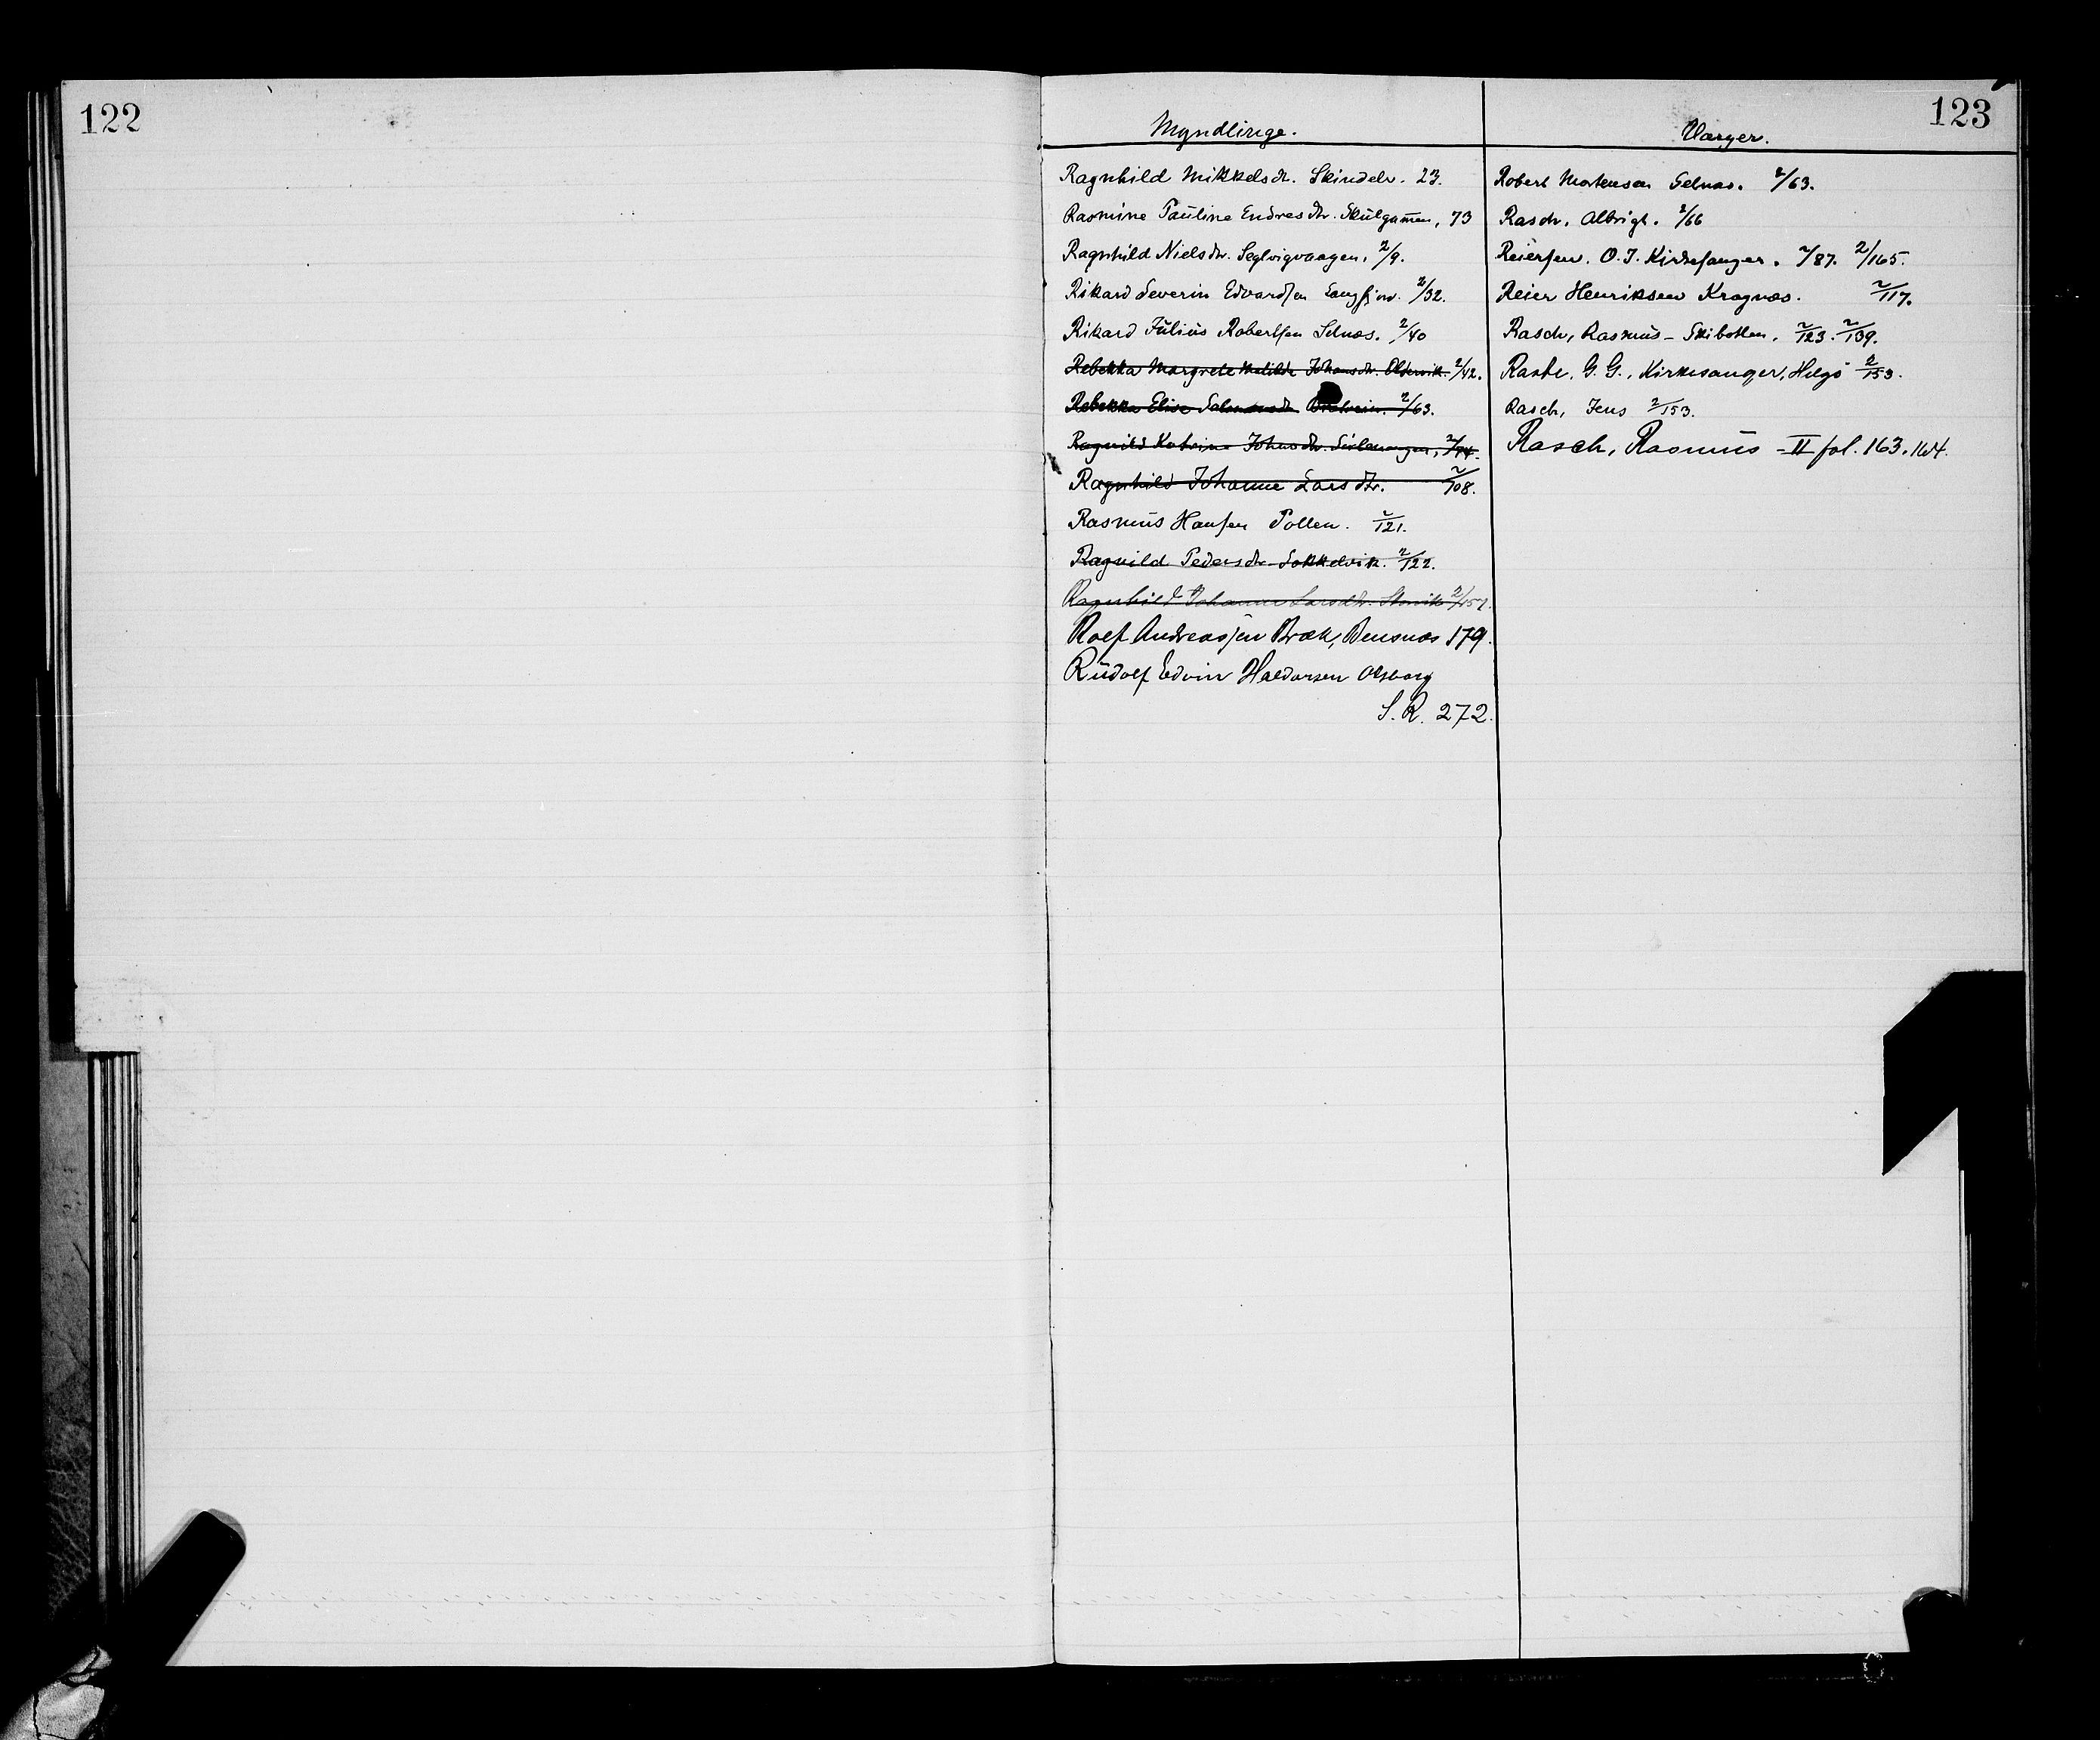 122
123
Myndlinge.
Ragnhild Mikkelsdr. Skindelv. 23.
Rasmine Paulina Endresdtr. Skulgammen, 73
Ragnhild Nielsdtr. Seglvigvaagen, 2/9.
Rikard Severin Edvardsen Langfjord. 2/32.
Rikard Julius Robertsen Selnæs. 2/40
Rebekka Margrete Matilde Johansdtr. Oldervik. 2/42.
Rebekka Elise 2/63.
Ragnild Katrine Johnsdtr.
Ragnhild Johanne Larsdtr. 2/108.
Rasmus Hansen Pollen. 2/121.
Ragnild Pedersdtr. Sokkelvik. 2/122.
Ragnhild Johanne Larsdtr. 2/151.
Rolf Andreassen Bræk, Bensnæs 179.
Rudolf Edvin Haldorsen Olsborg
S.R. 272.
Værger.
Robert Mortensen Selnæs. 2/63.
Rasch, Albrigt. 2/66
Reiersen, O.J. Kirkesanger. 2/87. 2/165.
Reier Henriksen Kragnæs. 2/117.
Rasch, Rasmus - Skibotten. 2/123. 2/139.
Raste, G.G., Kirkesanger, Helgø 2/153.
Rasch, Jens 2/153.
Rasch, Rasmus - II fol. 163. 164.